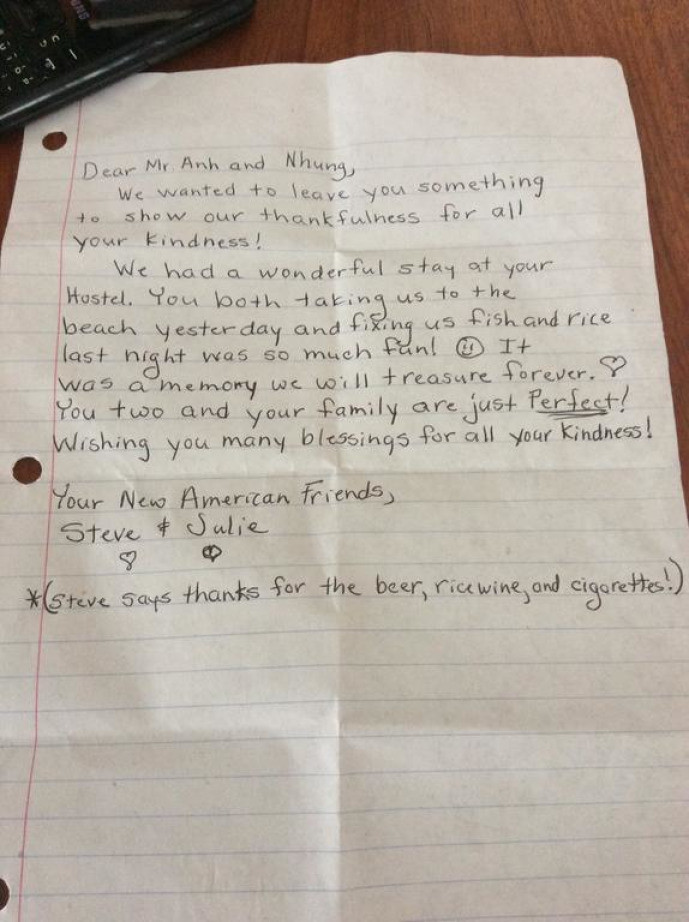 Dear Mr. Anh and Nhung,
We wanted to leave you something
to show our thankfulness for all
your kindness!
We had a wonderful stay at your
Hostel. You both taking us to the
beach yesterday and fixing us fish and rice
last night was so much fun! ☺ It
was a memory we will treasure forever. ♡
You two and your family are just Perfect!
Wishing you many blessings for all your kindness!
Your New American Friends,
Steve & Julie
♡ ♡
*(Steve says thanks for the beer, rice wine, and cigarettes!)